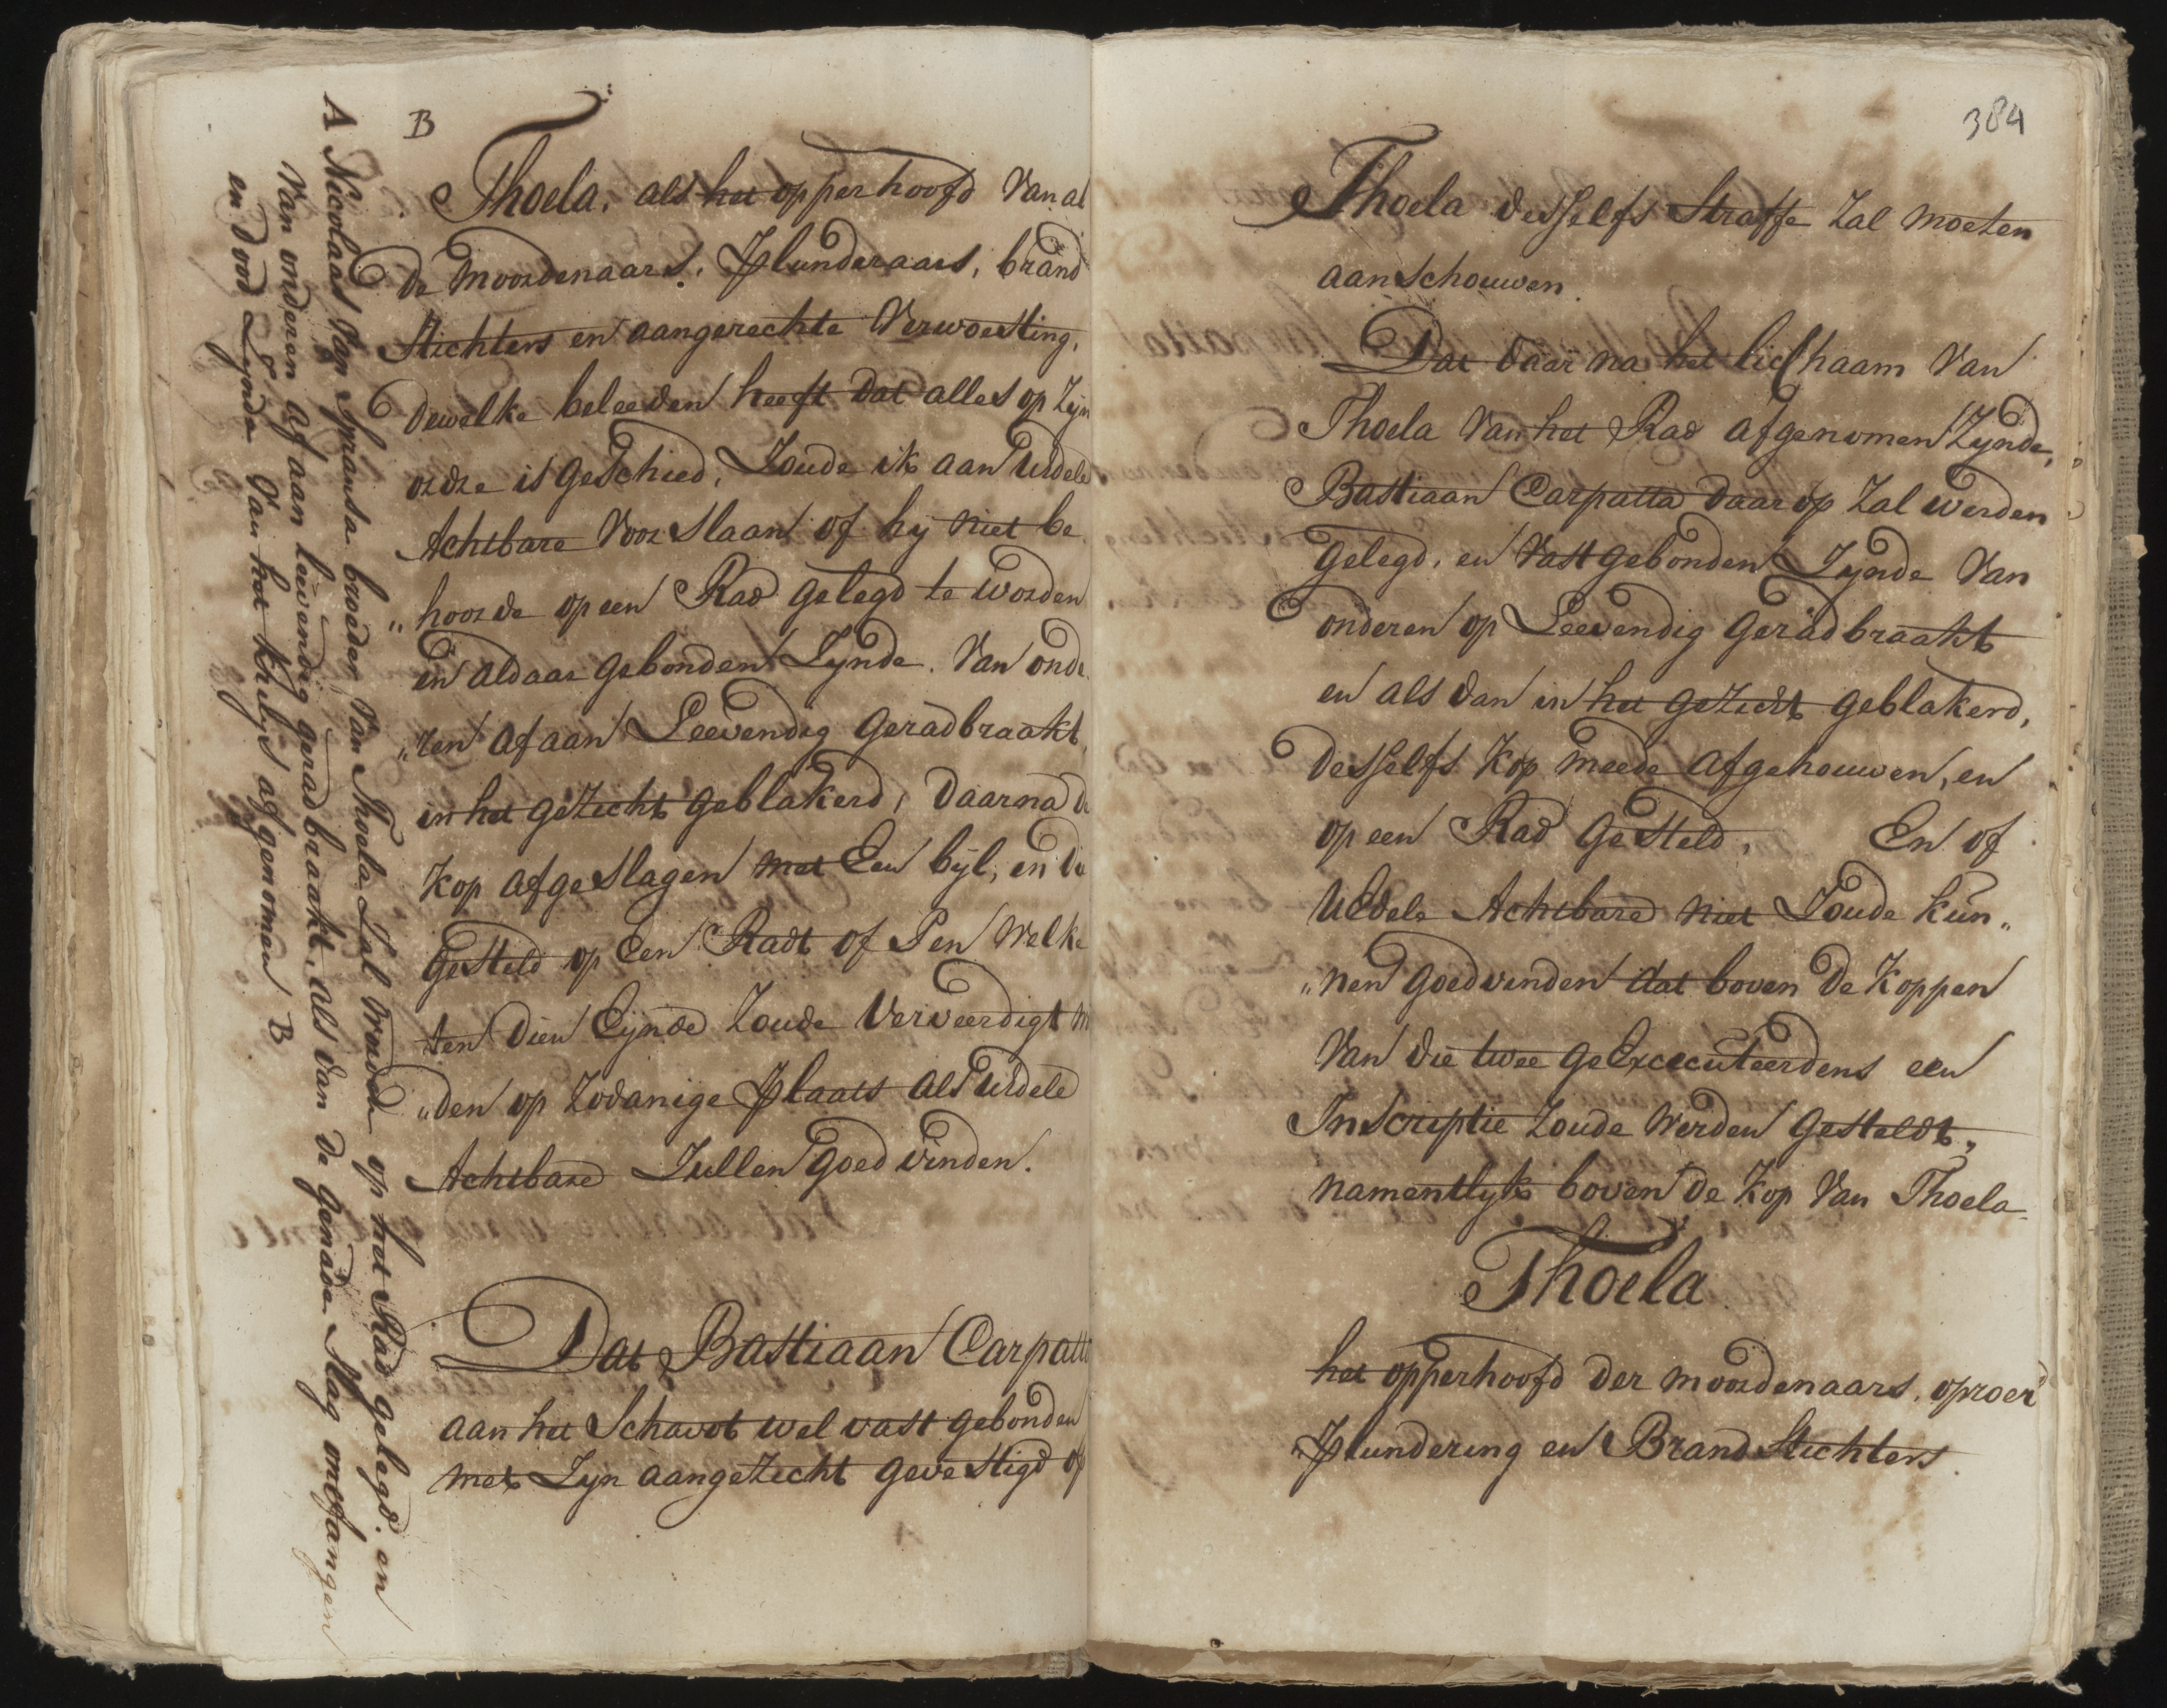 B
Thoela, als het opperhoofd Van al
de Moordenaars, Plunderaars, brand
Stichters en aangerechte Verwoesting,
dewelke beleeden heeft dat alles op Zijn
ordre is geschied, Zoude ik aan Uedele
Achtbare Voor slaan of hij niet be
„hoorde op een Rad gelegd te worden
en aldaar gebonden Zynde, Van onde
„ren af aan Leevendig geradbraakt,
in het gezicht geblakerd, daarna de
Kop afgeslagen met Een bijl, en die
gesteld op een Radt of Pen Welke
ten dien Eijnde Zoude Verveerdigt w
„den op Zodanige Plaats als Uedele
Achtbare Zullen goedvinden.
Dat Bastiaan Carpatt
aan het Schavot wel vast gebonden
met Zyn aangezicht gevestigd op
A Nicolaas Van Spransa broeder van Thoela Zal Worden op het Rad gelegd, en
Van onderen af aan leevendig geradbraakt, als dan de genade Slag ontfangen
en dood Zynde Van het Kruijs afgenomen B
384
Thoela desselfs Straffe Zal moeten
aanschouwen.
Dat daar na het lichaam Van
Thoela Van het Rad afgenomen Zynde,
Bastiaan Carpatta daar op Zal werden
gelegd, en Vast gebonden Zynde Van
onderen op Leevendig geradbraakt
en als dan in het gezicht geblakerd,
desselfs Kop meede afgehouwen, en
op een Rad gesteld. En of
UEdele Achtbare niet Zoude kun„
„nen goedvinden dat boven de Koppen
Van die twee geExecuteerdens een
Inscriptie Zoude Werden gesteldt,
namentlyk boven de Kop Van Thoela
Thoela
het opperhoofd der moordenaars, oproer
Plundering en Brand Stichters.